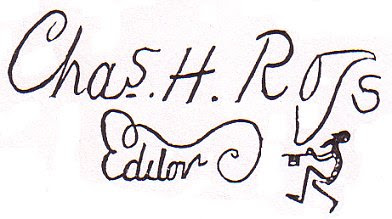 Chas. H. Ross
Editor